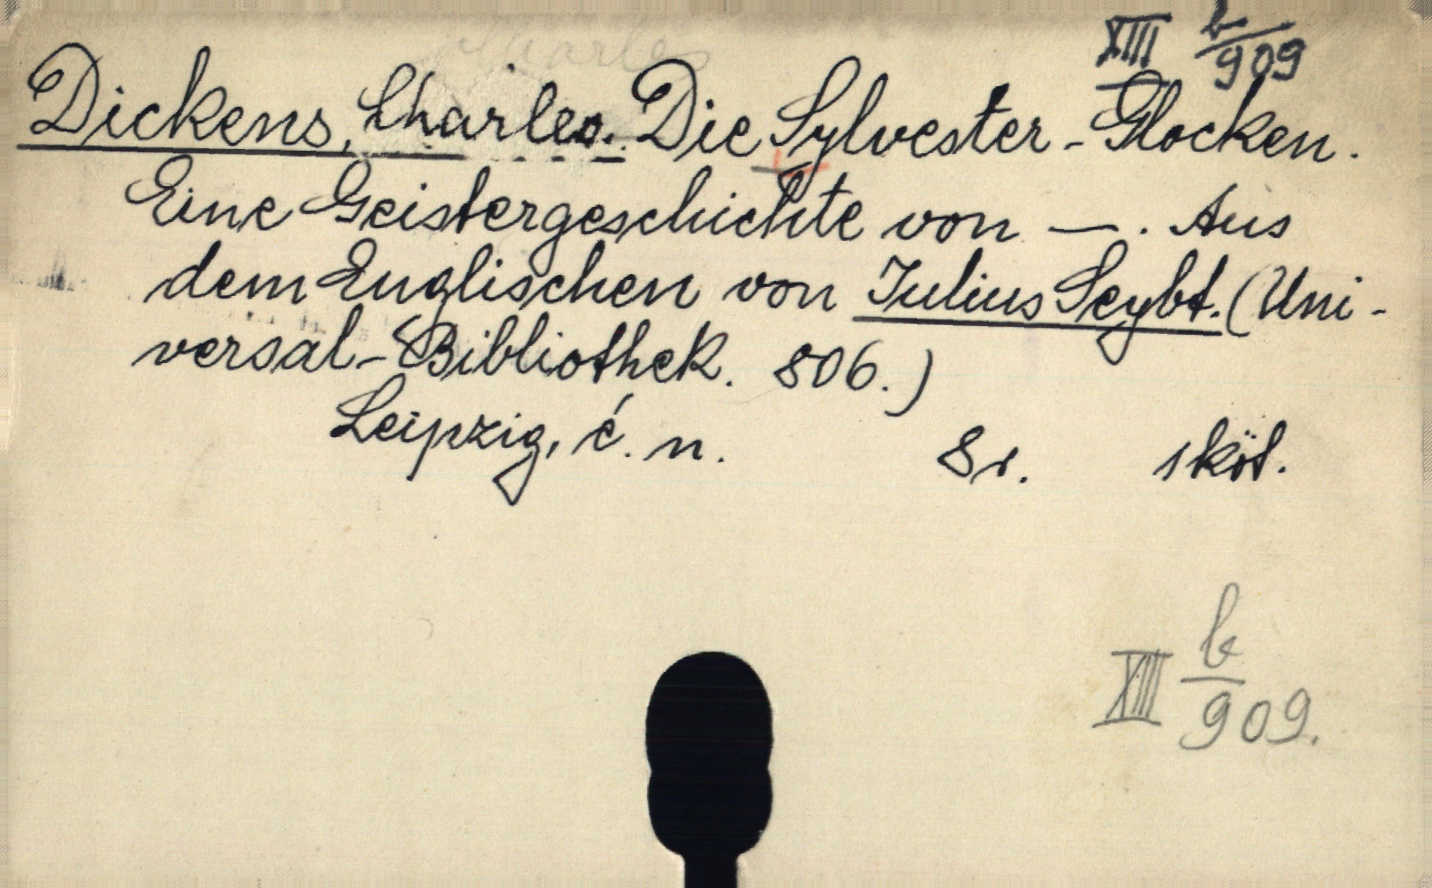 XIII b/909
Dickens, Charles. Die Sylvester-Glocken.
Eine Geistergeschichte von —. Aus
dem Englischen von Julius Seybt. (Uni-
versal-Bibliothek. 806.)
Leipzig, é. n. 8r. 1 köt.
XIII b/909.